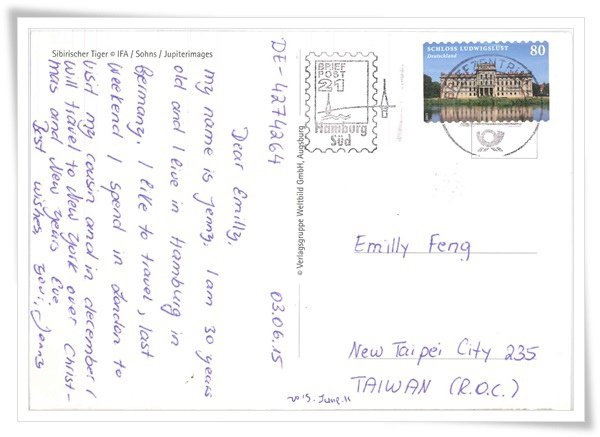 Sibirischer Tiger © IFA / Sohns / Jupiterimages
DE-4274264
03.06.15
Dear Emilly,
my name is Jenny. I am 30 years
old and I live in Hamburg in
Germany. I like to travel, last
weekend I spend in London to
visit my cousin and in december I
will travel to New York over Christ-
mas and New Years Eve.
Best wishes
Jenny
© Verlagsgruppe Weltbild GmbH, Augsburg
BRIEF
POST
21
Hamburg
Süd
SCHLOSS LUDWIGSLUST
Deutschland
80
Emilly Feng
New Taipei City 235
TAIWAN (R.O.C.)
2015. June. 11